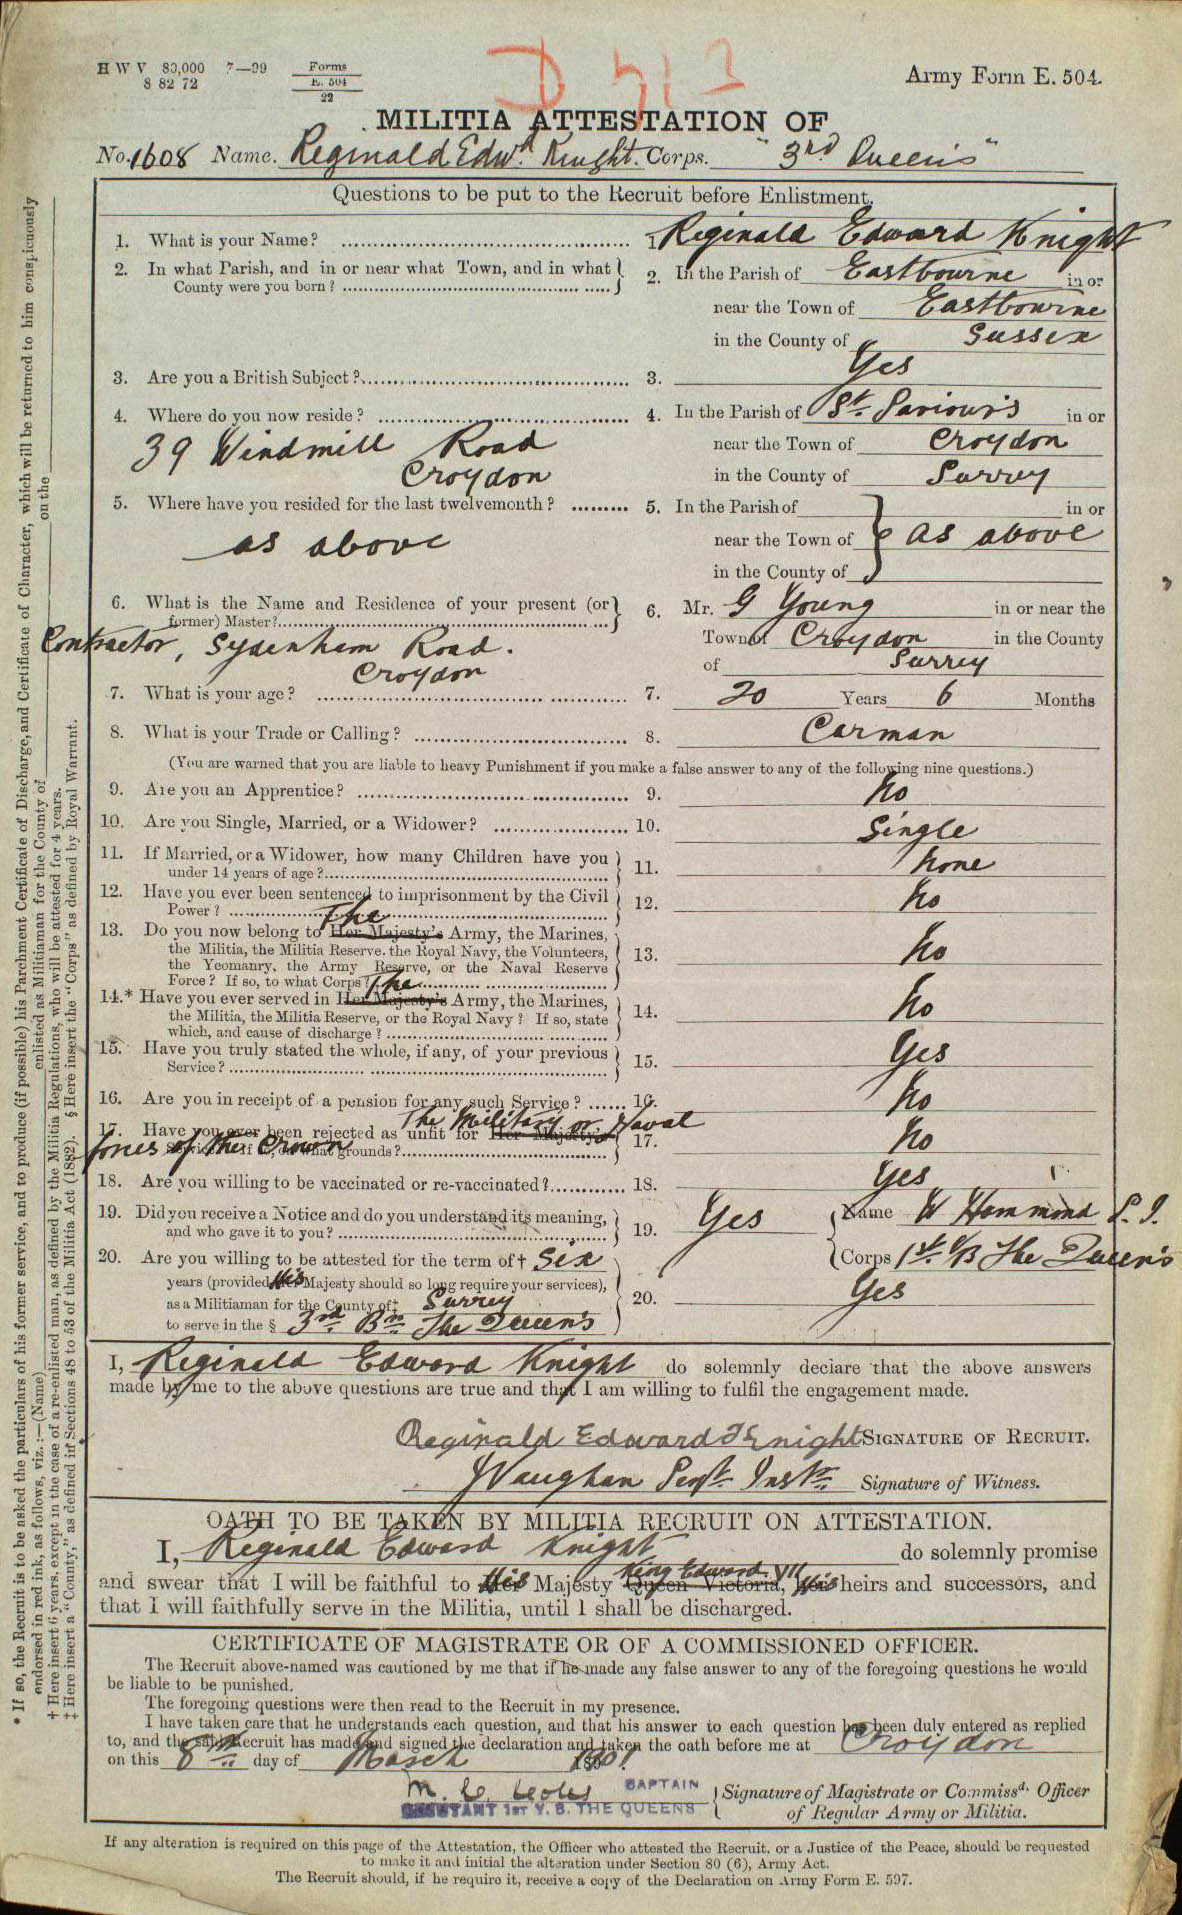 H W V 80,000 7—99
8 82 72
Forms
E. 504
22
Army Form E. 504.
MILITIA ATTESTATION OF
No. 1608 Name. Reginald Edwd Knight. Corps. "3rd Queen's"
Questions to be put to the Recruit before Enlistment.
1. What is your Name? 1. Reginald Edward Knight
2. In what Parish, and in or near what Town, and in what County were you born? 2. In the Parish of Eastbourne in or
near the Town of Eastbourne
in the County of Sussex
3. Are you a British Subject? 3. Yes
4. Where do you now reside? 4. In the Parish of St. Saviour's in or
39 Windmill Road near the Town of Croydon
Croydon in the County of Surrey
5. Where have you resided for the last twelvemonth? 5. In the Parish of in or
as above near the Town of as above
in the County of
6. What is the Name and Residence of your present (or former) Master? 6. Mr. G Young in or near the
Contractor, Sydenham Road. Town of Croydon in the County
Croydon of Surrey
7. What is your age? 7. 20 Years 6 Months
8. What is your Trade or Calling? 8. Carman
(You are warned that you are liable to heavy Punishment if you make a false answer to any of the following nine questions.)
9. Are you an Apprentice? 9. No
10. Are you Single, Married, or a Widower? 10. Single
11. If Married, or a Widower, how many Children have you
under 14 years of age? 11. None
12. Have you ever been sentenced to imprisonment by the Civil
Power? 12. No
The
13. Do you now belong to Her Majesty's Army, the Marines,
the Militia, the Militia Reserve, the Royal Navy, the Volunteers,
the Yeomanry, the Army Reserve, or the Naval Reserve
Force? If so, to what Corps? 13. No
The
14.* Have you ever served in Her Majesty's Army, the Marines,
the Militia, the Militia Reserve, or the Royal Navy? If so, state
which, and cause of discharge? 14. No
15. Have you truly stated the whole, if any, of your previous
Service? 15. Yes
16. Are you in receipt of a pension for any such Service? 16. No
The Military or Naval
17. Have you ever been rejected as unfit for Her Majesty's
forces of the Crown grounds? 17. No
18. Are you willing to be vaccinated or re-vaccinated? 18. Yes
19. Did you receive a Notice and do you understand its meaning,
and who gave it to you? 19. Yes Name W Hammond S. I.
Corps 1st VB The Queen's
20. Are you willing to be attested for the term of † Six
years (provided His Majesty should so long require your services),
as a Militiaman for the County of ‡ Surrey
to serve in the § 3rd Bn. The Queen's 20. Yes
I, Reginald Edward Knight do solemnly declare that the above answers
made by me to the above questions are true and that I am willing to fulfil the engagement made.
Reginald Edward Knight SIGNATURE OF RECRUIT.
J Vaughan Sergt. Instr. Signature of Witness.
OATH TO BE TAKEN BY MILITIA RECRUIT ON ATTESTATION.
I, Reginald Edward Knight do solemnly promise
King Edward VII
and swear that I will be faithful to His Majesty Queen Victoria, His heirs and successors, and
that I will faithfully serve in the Militia, until I shall be discharged.
CERTIFICATE OF MAGISTRATE OR OF A COMMISSIONED OFFICER.
The Recruit above-named was cautioned by me that if he made any false answer to any of the foregoing questions he would
be liable to be punished.
The foregoing questions were then read to the Recruit in my presence.
I have taken care that he understands each question, and that his answer to each question has been duly entered as replied
to, and the said Recruit has made and signed the declaration and taken the oath before me at Croydon
on this 8th day of March 1901.
CAPTAIN
ADJUTANT 1ST V. B. THE QUEENS
Signature of Magistrate or Commissd. Officer
of Regular Army or Militia.
If any alteration is required on this page of the Attestation, the Officer who attested the Recruit, or a Justice of the Peace, should be requested
to make it and initial the alteration under Section 80 (6), Army Act.
The Recruit should, if he require it, receive a copy of the Declaration on Army Form E. 597.
* If so, the Recruit is to be asked the particulars of his former service, and to produce (if possible) his Parchment Certificate of Discharge, and Certificate of Character, which will be returned to him conspicuously
endorsed in red ink, as follows, viz.:—(Name) enlisted as Militiaman for the County of on the
† Here insert 6 years, except in the case of a re-enlisted man, as defined by the Militia Regulations, who will be attested for 4 years.
‡ Here insert a "County," as defined in Sections 48 to 53 of the Militia Act (1882). § Here insert the "Corps" as defined by Royal Warrant.